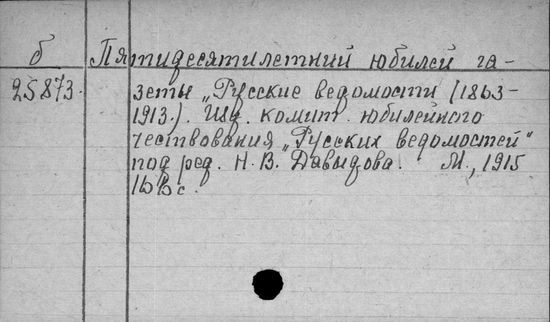 б Пятидесятилетний юбилей га-
25873. зеты „Русские ведомости (1863-
1913.). Изд. комит. юбилейного
чествования „Русских ведомостей"
под ред. Н. В. Давыдова. М., 1915
166 с.